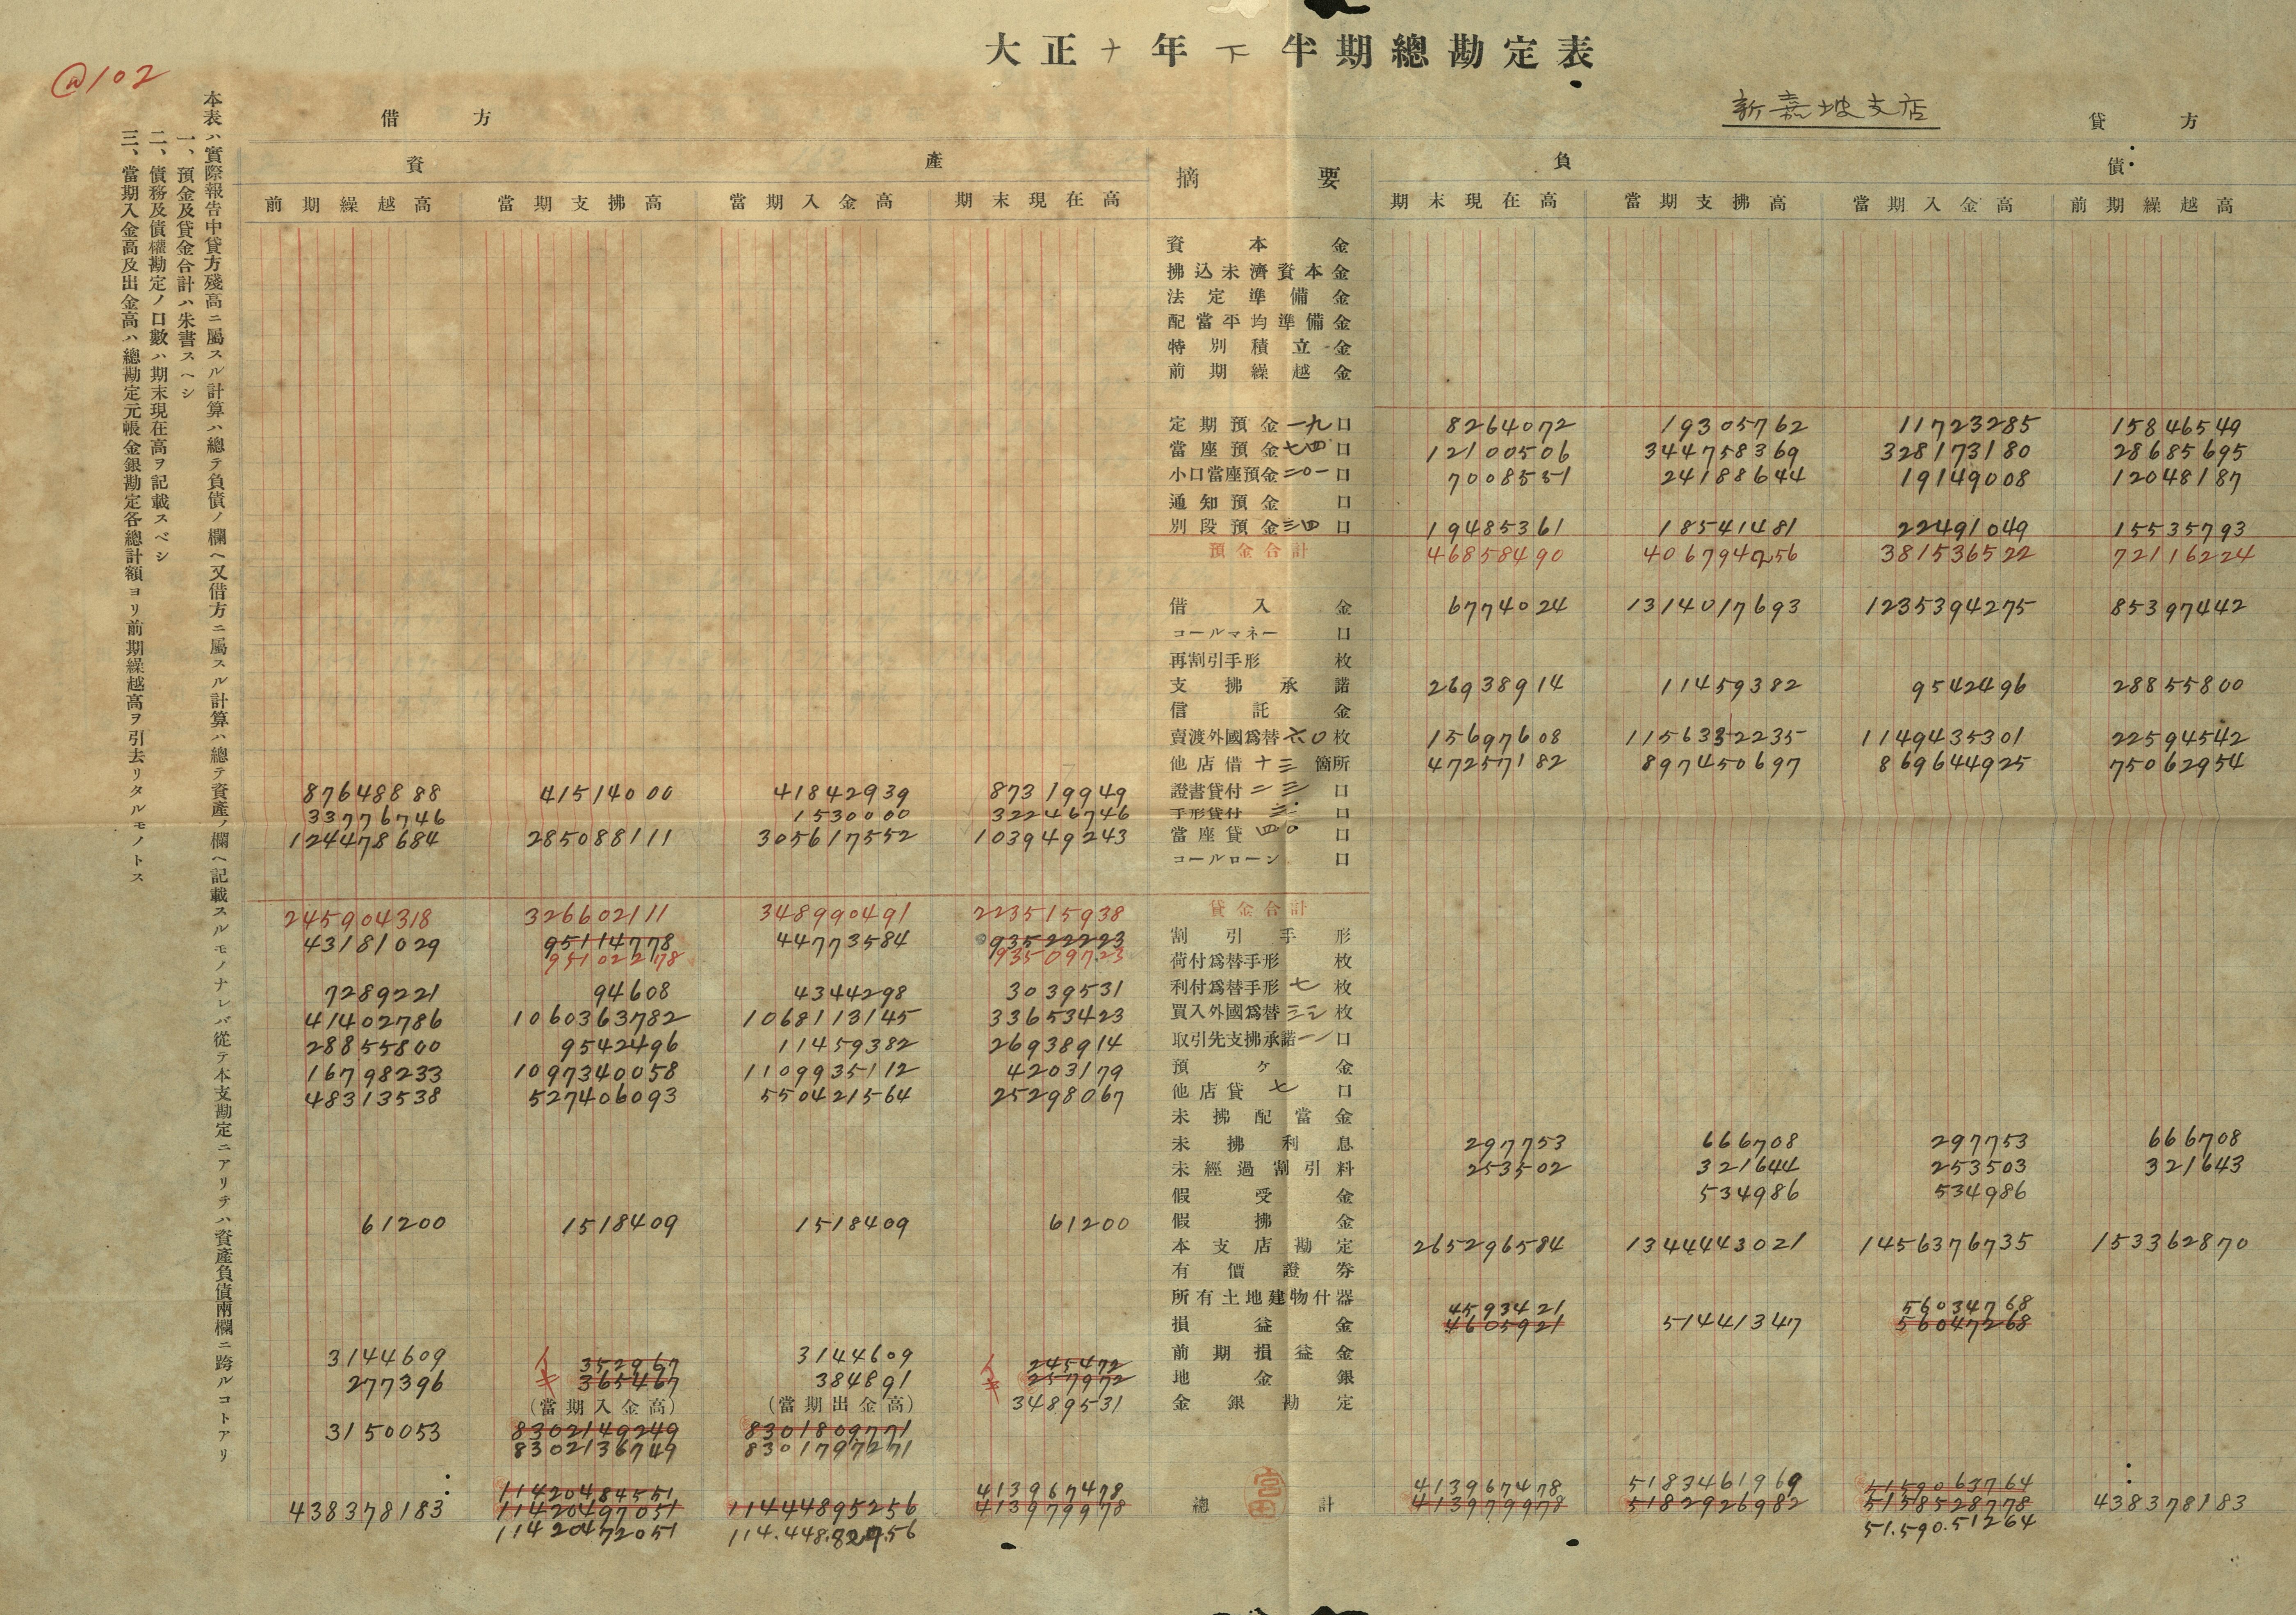 大正十年下半期總勘定表
@102
新嘉坡支店
借方
貸方
資產
摘要
負債
前期繰越高 當期支拂高 當期入金高 期末現在高 期末現在高 當期支拂高 當期入金高 前期繰越高
資本金
拂込未濟資本金
法定準備金
配當平均準備金
特別積立金
前期繰越金
定期預金一九口 8264072 19305762 11723285 15846549
當座預金七四口 12100506 344758369 328173180 28685695
小口當座預金二〇一口 7008551 24188644 19149008 12048187
通知預金口
別段預金三四口 19485361 18541481 22491049 15535793
預金合計 46858490 406794256 381536522 72116224
借入金 6774024 1314017693 1235394275 85397442
コールマネー口
再割引手形枚
支拂承諾 26938914 11459382 9542496 28855800
信託金
賣渡外國爲替六〇枚 15697608 1156332235 1149435301 22594542
他店借十三箇所 47257182 897450697 869644925 75062954
87648888 41514000 41842939 87319949 證書貸付二三口
33776746 1530000 32246746 手形貸付三口
124478684 285088111 305617552 103949243 當座貸四〇口
コールローン口
245904318 326602111 348990491 223515938 貸金合計
43181029 95114778 44773584 93522223 割引手形
95102278 93509723 荷付爲替手形枚
7289221 94608 4344298 3039531 利付爲替手形七枚
41402786 1060363782 1068113145 33653423 買入外國爲替三三枚
28855800 9542496 11459382 26938914 取引先支拂承諾一一口
16798233 1097340058 1109935112 4203179 預ケ金
48313538 527406093 550421564 25298067 他店貸七口
未拂配當金
未拂利息 297753 666708 297753 666708
未經過割引料 253502 321644 253503 321643
假受金 534986 534986
61200 1518409 1518409 61200 假拂金
本支店勘定 265296584 1344443021 1456376735 153362870
有價證券
所有土地建物什器
4593421 56034768
損益金 4605921 51441347 56047268
3144609 352967 3144609 245472 前期損益金
277396 365467 384891 257972 地金銀
(當期入金高) (當期出金高) 3489531 金銀勘定
3150053 8302149249 8301809771
8302136749 8301797271
11420484551 413967478 413967478 5183461969 5159063764
438378183 11420497051 11444895256 413979978 總計 413979978 5182926982 5158528778 438378183
11420472051 114.448.827.56 51.590.51264
宮田
本表ハ實際報告中貸方殘高ニ屬スル計算ハ總テ負債ノ欄ヘ又借方ニ屬スル計算ハ總テ資產ノ欄ヘ記載スルモノナレバ從テ本支勘定ニアリテハ資產負債兩欄ニ跨ルコトアリ
一、預金及貸金合計ハ朱書スヘシ
二、債務及債權勘定ノ口數ハ期末現在高ヲ記載スベシ
三、當期入金高及出金高ハ總勘定元帳金銀勘定各總計額ヨリ前期繰越高ヲ引去リタルモノトス